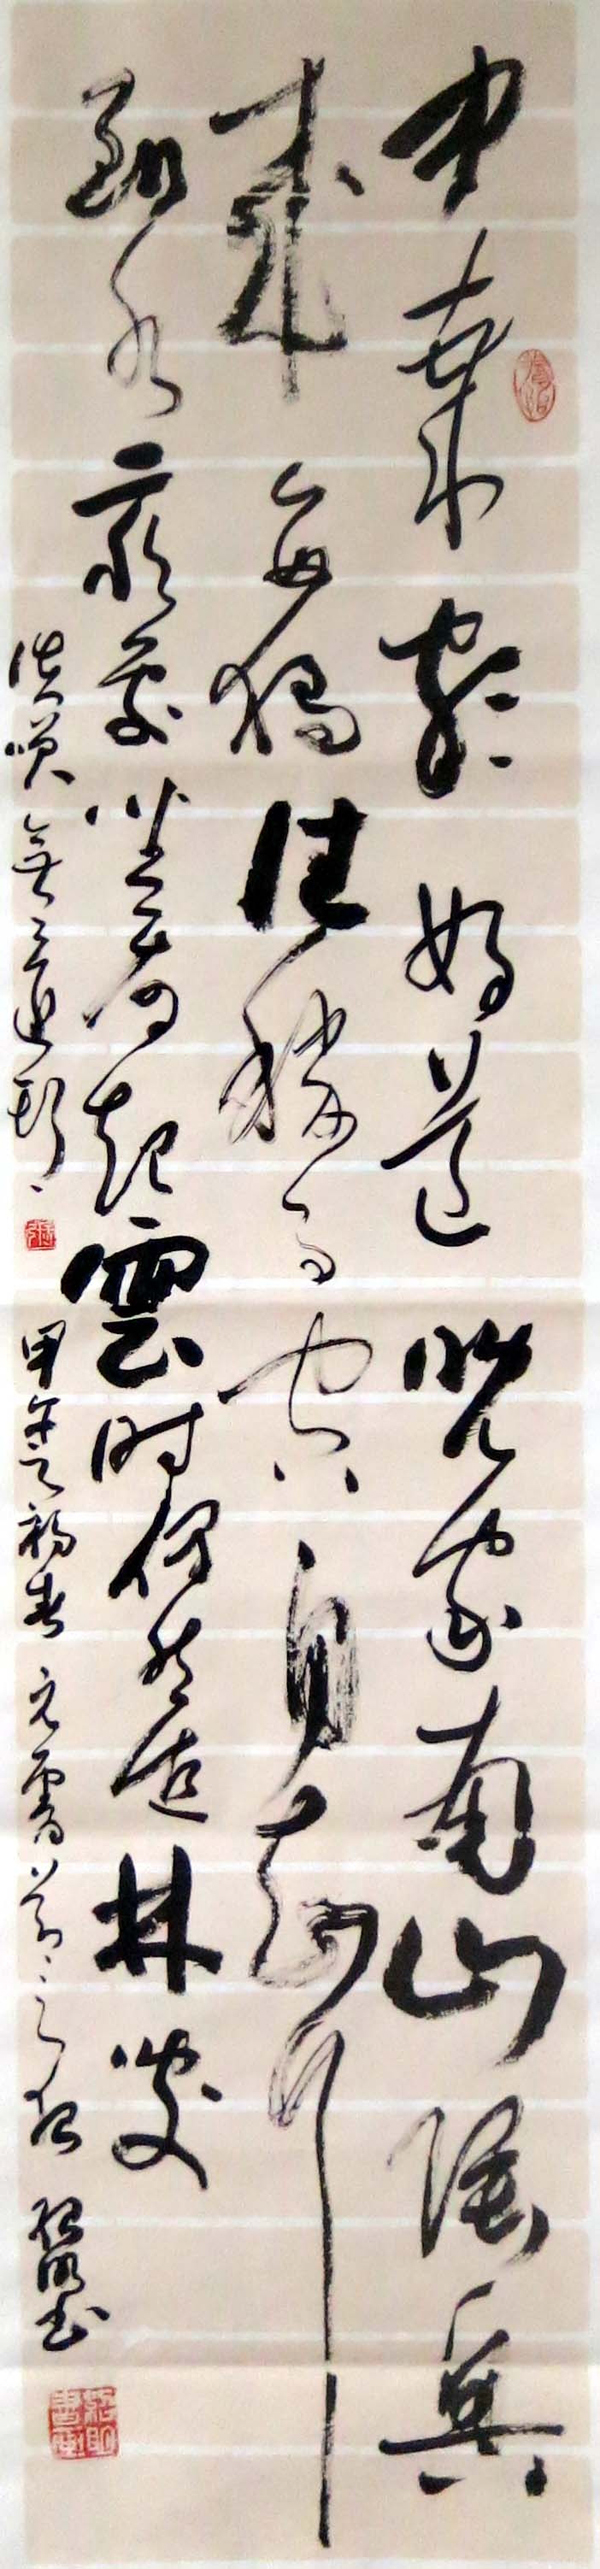 中歲頗好道晚家南山陲興
來每獨往勝事空自知行
到水窮處坐看起雲時偶然值林叟
談笑無還期 甲午之初春 元宵前之夜